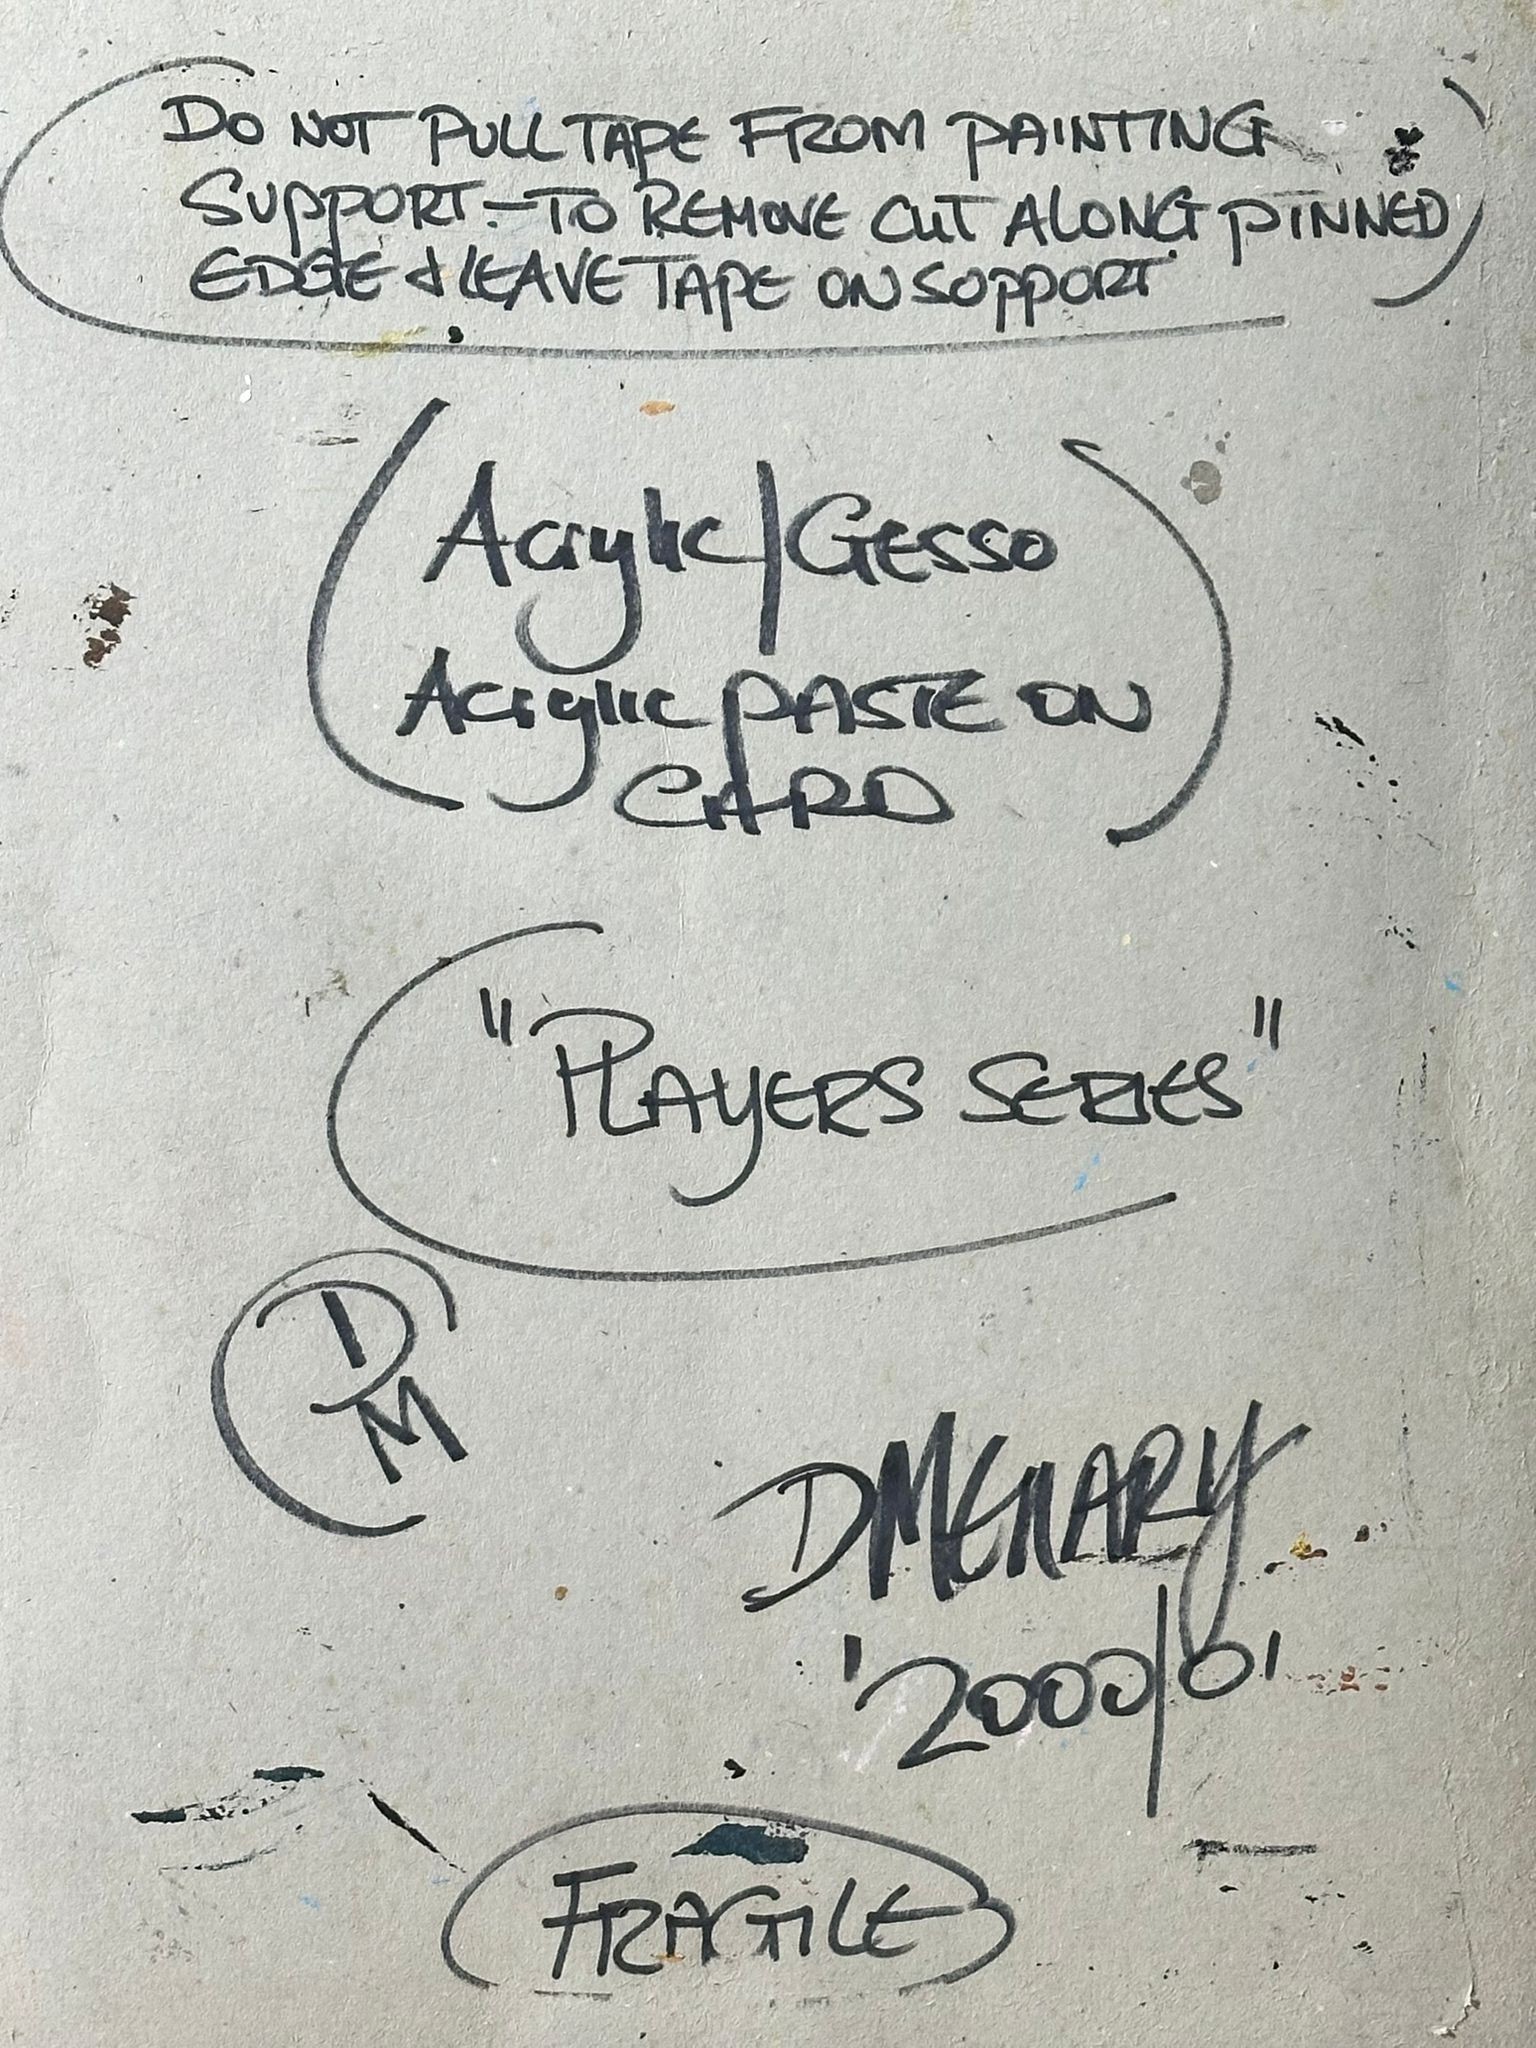 DO NOT PULL TAPE FROM PAINTING
SUPPORT - TO REMOVE CUT ALONG PINNED
EDGE & LEAVE TAPE ON SOPPORT
Acrylic/GESSO
Acrylic PASTE ON
CARD
"PLAYERS SERIES"
D
M
DMENARY
'2000/0'
FRAGILE